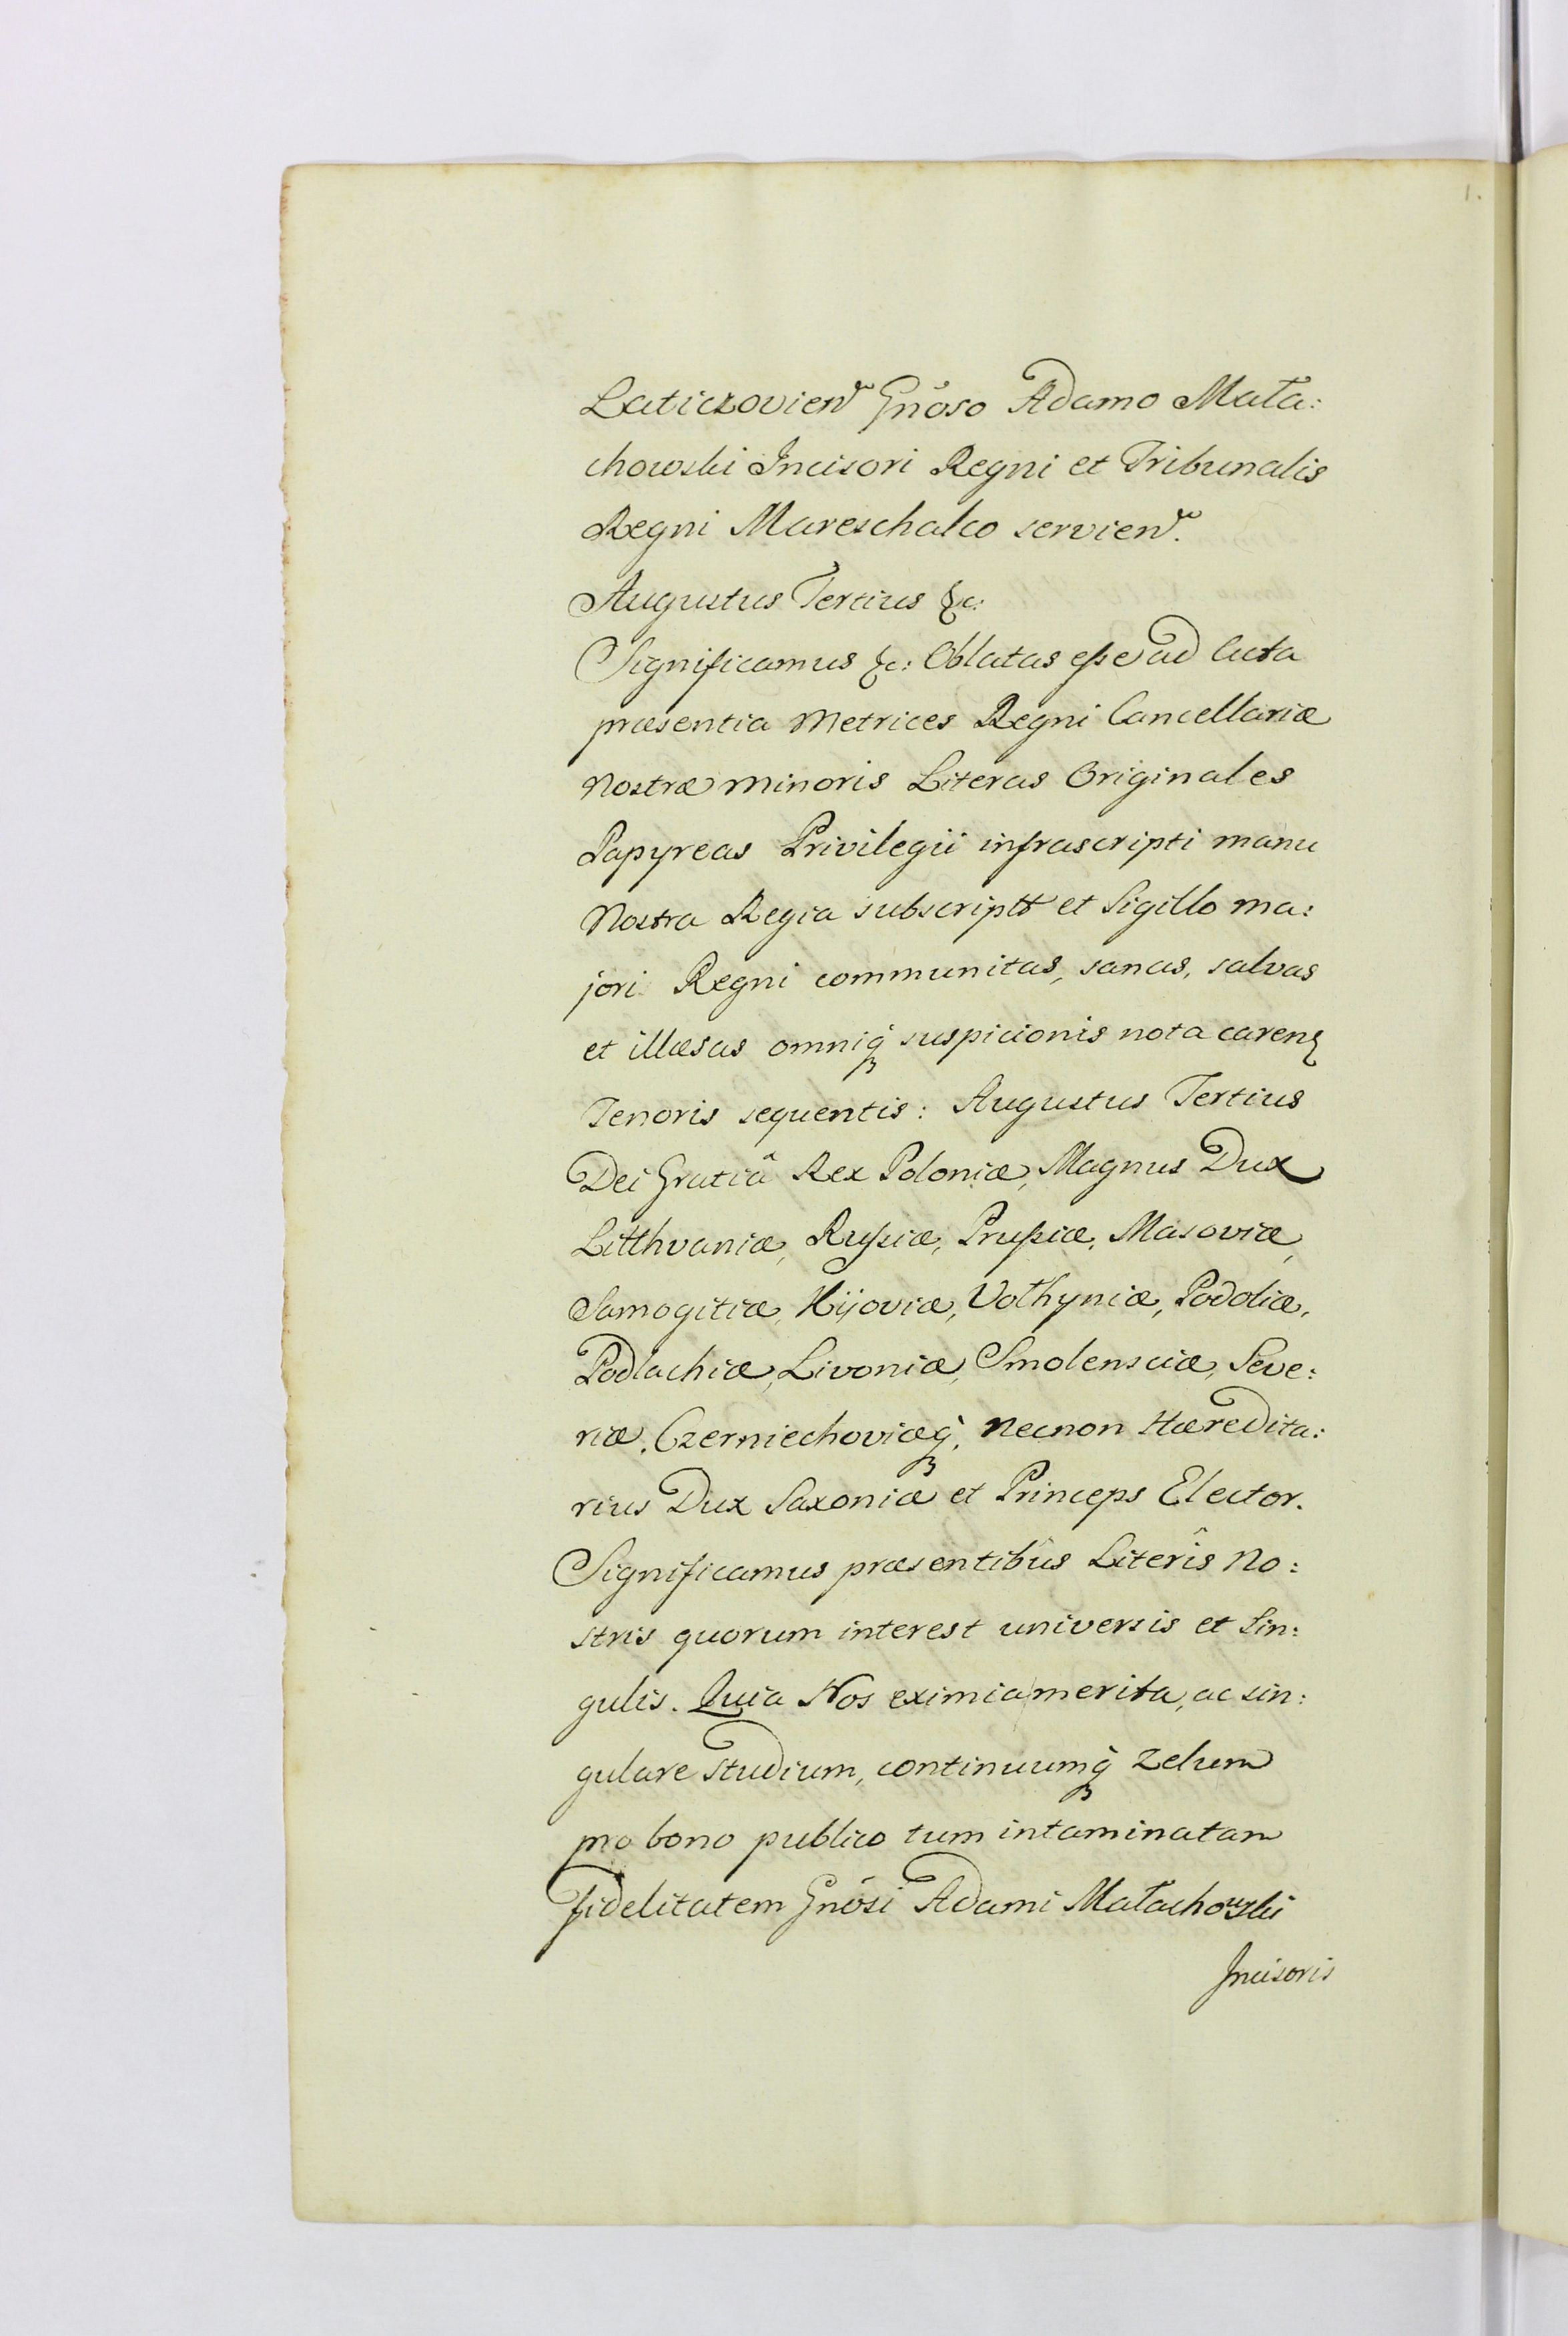 1.
Laticzovien Gnoso Adamo Mała:
chowski Incisori Regni et Tribunalis
Regni Mareschalco servien.
Augustus Tertius &c:
Significamus &c: Oblatas esse ad Acta
præsentia Metrices Regni Cancellariæ
Nostræ minoris Literas Originales
Papyreas Privilegii infrascripti manu
Nostra Regia subscriptt et Sigillo ma:
jori Regni communitas, sanas, salvas
et illæsas omniq́ suspicionis nota caren
Tenoris sequentis: Augustus Tertius
Dei Gratiâ Rex Poloniæ, Magnus Dux
Litthvaniæ, Russiæ, Prussiæ, Masoviæ,
Samogitiæ, Kijoviæ, Vołhyniæ, Podoliæ,
Podlachiæ, Livoniæ, Smolensciæ, Seve:
riæ, Czerniechoviæq́, necnon Hæredita:
rius Dux Saxoniæ et Princeps Elector.
Significamus præsentibûs Literîs No:
stris quorum interest universis et Sin:
gulis. Quia Nos eximia merita, ac sin:
gulare studium, continuumq́ zelum
pro bono publico tum intaminatam
fidelitatem Gnosi Adami Małachowski
Incisoris